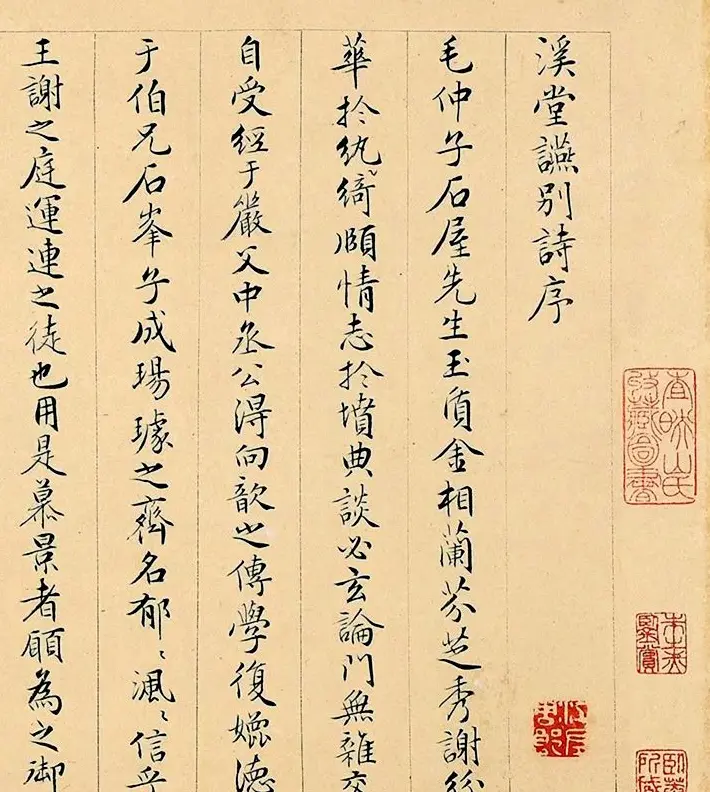 溪堂讌別詩序
毛仲子石屋先生玉貭金相蘭芬芝秀謝紛
華於紈綺頤情志於墳典談必玄論門無雜交
自受經于嚴父中丞公得向歆之傳學復媲德
于伯兄石峯子成瑒璩之齊名郁〻渢〻信乎
王謝之庭運連之徒也用是慕景者願為之御
查映山氏
收藏圖書